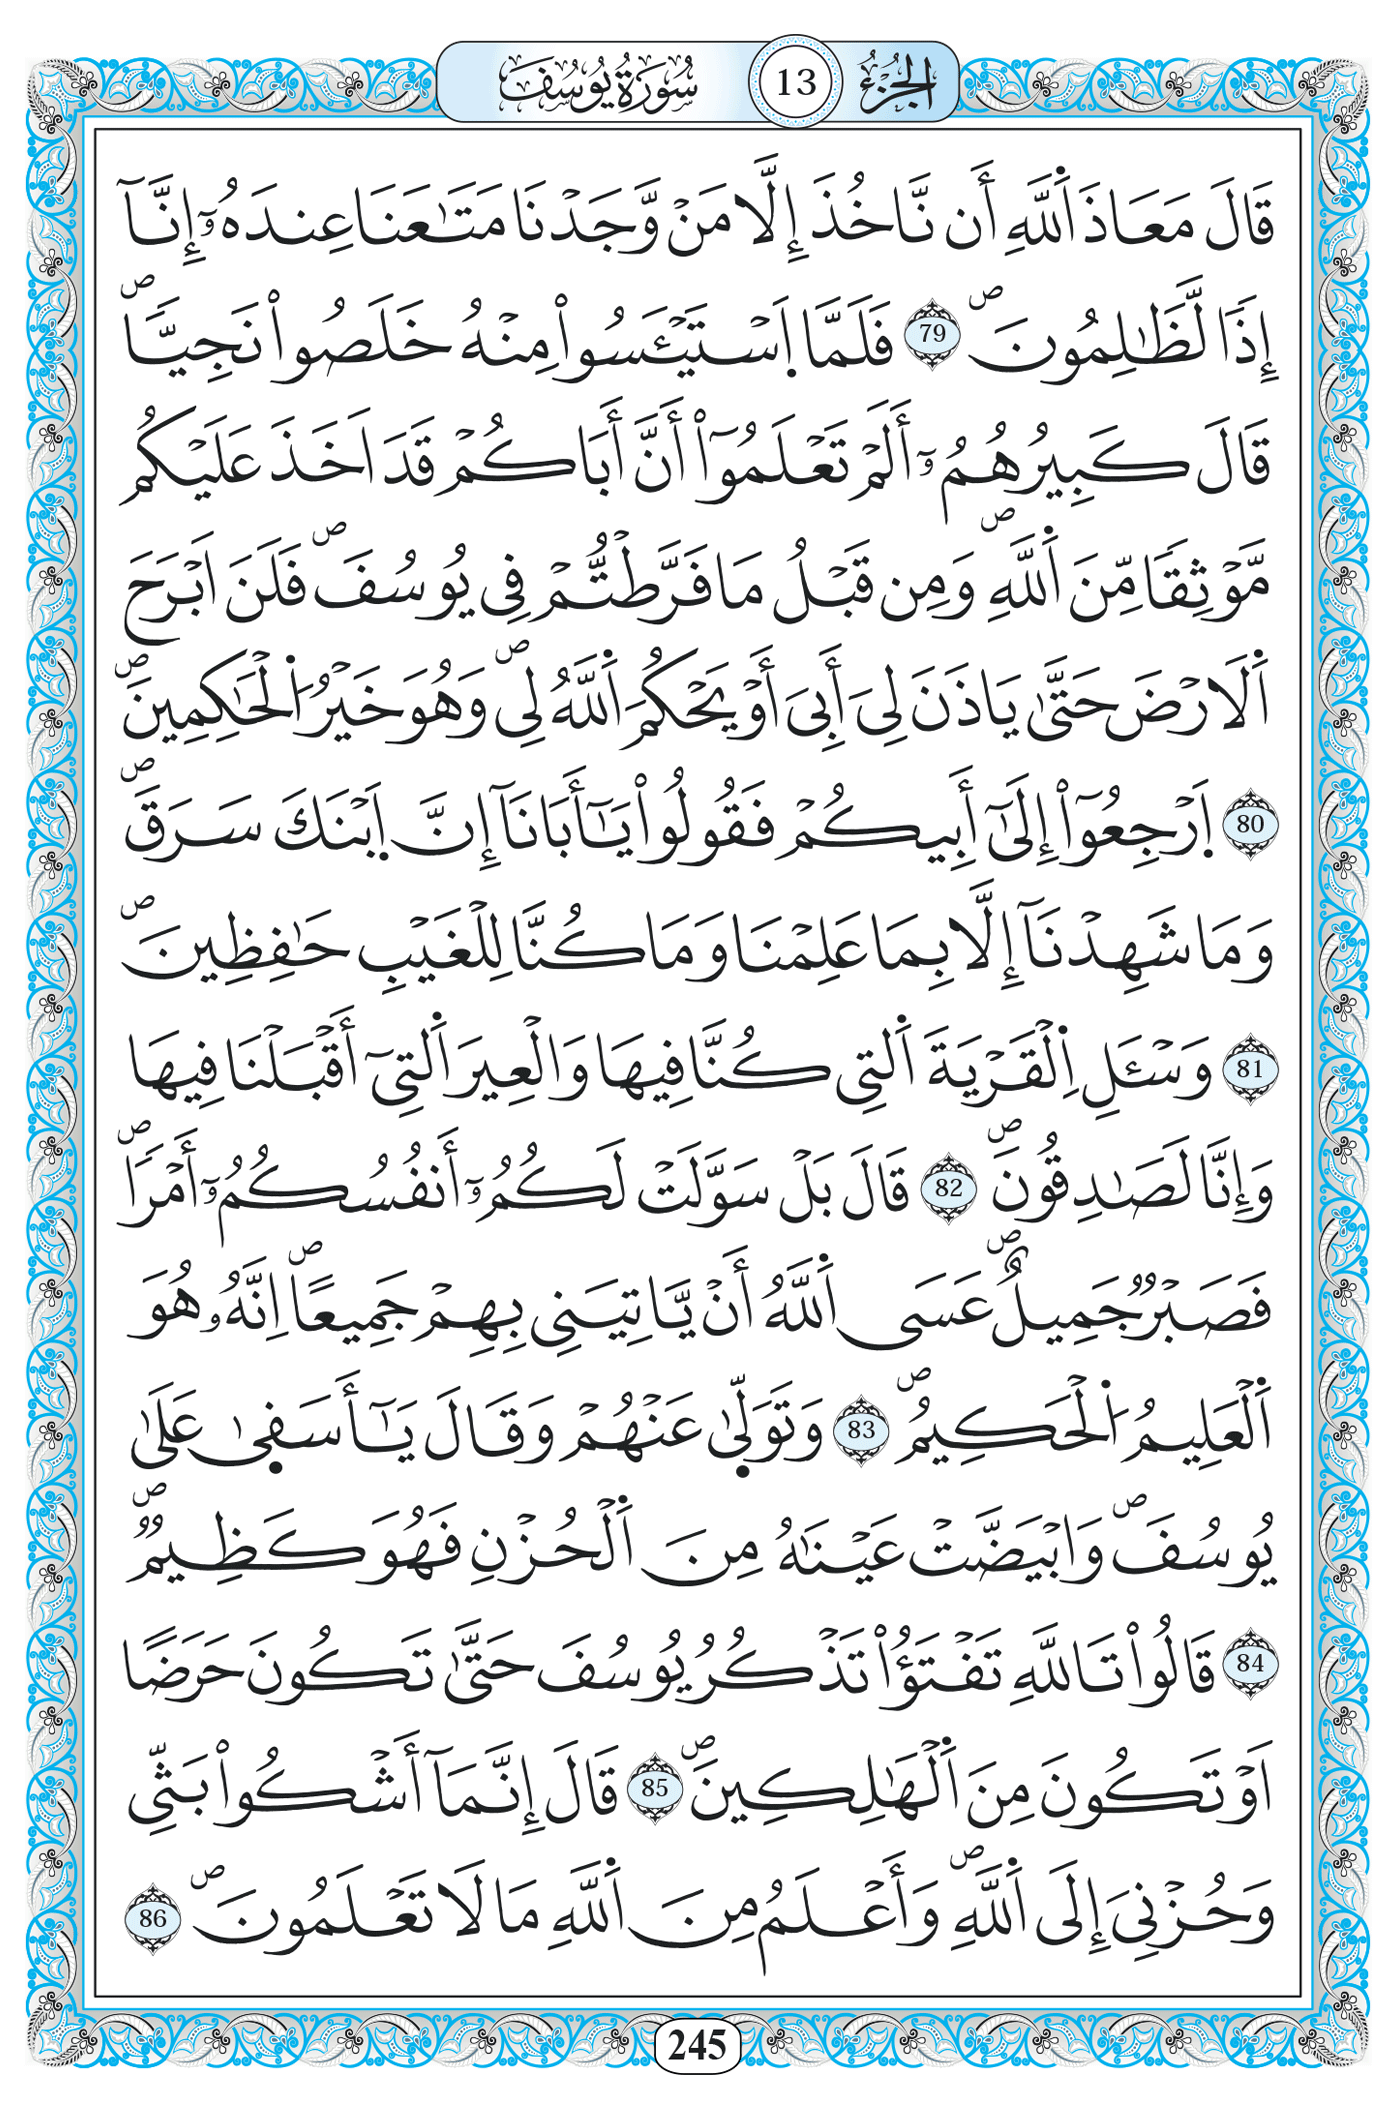 الجزء 13 سورة يوسف
قَالَ مَعَاذَ اَ۬للَّهِ أَن نَّاخُذَ إِلَّا مَنْ وَّجَدْنَا مَتَٰعَنَا عِندَهُۥٓ إِنَّآ
إِذَا لَّظَٰلِمُونَۖ 79 فَلَمَّا اَ۪سْتَيْـَٔسُواْ مِنْهُ خَلَصُواْ نَجِيّاٗۖ
قَالَ كَبِيرُهُمُۥٓ أَلَمْ تَعْلَمُوٓاْ أَنَّ أَبَاكُمْ قَدَ اَخَذَ عَلَيْكُم
مَّوْثِقاٗ مِّنَ اَ۬للَّهِۖ وَمِن قَبْلُ مَا فَرَّطتُّمْ فِي يُوسُفَۖ فَلَنَ اَبْرَحَ
اَ۬لَارْضَ حَتَّىٰ يَاذَنَ لِيَ أَبِيَ أَوْ يَحْكُمَ اَ۬للَّهُ لِيۖ وَهُوَ خَيْرُ اُ۬لْحَٰكِمِينَۖ
80 اَ۪رْجِعُوٓاْ إِلَىٰٓ أَبِيكُمْ فَقُولُواْ يَٰٓأَبَانَآ إِنَّ اَ۪بْنَكَ سَرَقَۖ
وَمَا شَهِدْنَآ إِلَّا بِمَا عَلِمْنَا وَمَا كُنَّا لِلْغَيْبِ حَٰفِظِينَۖ
81 وَسْـَٔلِ اِ۬لْقَرْيَةَ اَ۬لتِي كُنَّا فِيهَا وَالْعِيرَ اَ۬لتِيٓ أَقْبَلْنَا فِيهَا
وَإِنَّا لَصَٰدِقُونَۖ 82 قَالَ بَلْ سَوَّلَتْ لَكُمُۥٓ أَنفُسُكُمُۥٓ أَمْراٗۖ
فَصَبْرٞ جَمِيلٌۖ عَسَى اَ۬للَّهُ أَنْ يَّاتِيَنِي بِهِمْ جَمِيعاًۖ اِنَّهُۥ هُوَ
اَ۬لْعَلِيمُ اُ۬لْحَكِيمُۖ 83 وَتَوَلّ۪ىٰ عَنْهُمْ وَقَالَ يَٰٓأَسَف۪ىٰ عَلَىٰ
يُوسُفَۖ وَابْيَضَّتْ عَيْنَٰهُ مِنَ اَ۬لْحُزْنِ فَهُوَ كَظِيمٞۖ
84 قَالُواْ تَاللَّهِ تَفْتَؤُاْ تَذْكُرُ يُوسُفَ حَتَّىٰ تَكُونَ حَرَضاً
اَوْ تَكُونَ مِنَ اَ۬لْهَٰلِكِينَۖ 85 قَالَ إِنَّمَآ أَشْكُواْ بَثِّي
وَحُزْنِيَ إِلَى اَ۬للَّهِۖ وَأَعْلَمُ مِنَ اَ۬للَّهِ مَا لَا تَعْلَمُونَۖ 86
245